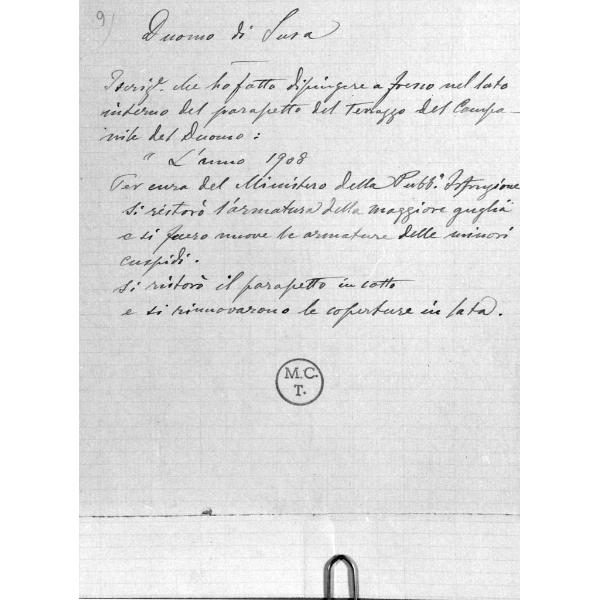 9)
Duomo di Susa
Iscrize. che ho fatto dipingere a fresco nel lato
interno del parapetto del terrazzo del Campa-
nile del Duomo:
" L'anno 1908
Per cura del Ministero della Pubba. Istruzione
si ristorò l'armatura della maggiore guglia
e si fecero nuove le armature delle minori
cuspidi.
si ristorò il parapetto in cotto
e si rinnovarono le coperture in lata.
M.C.
T.